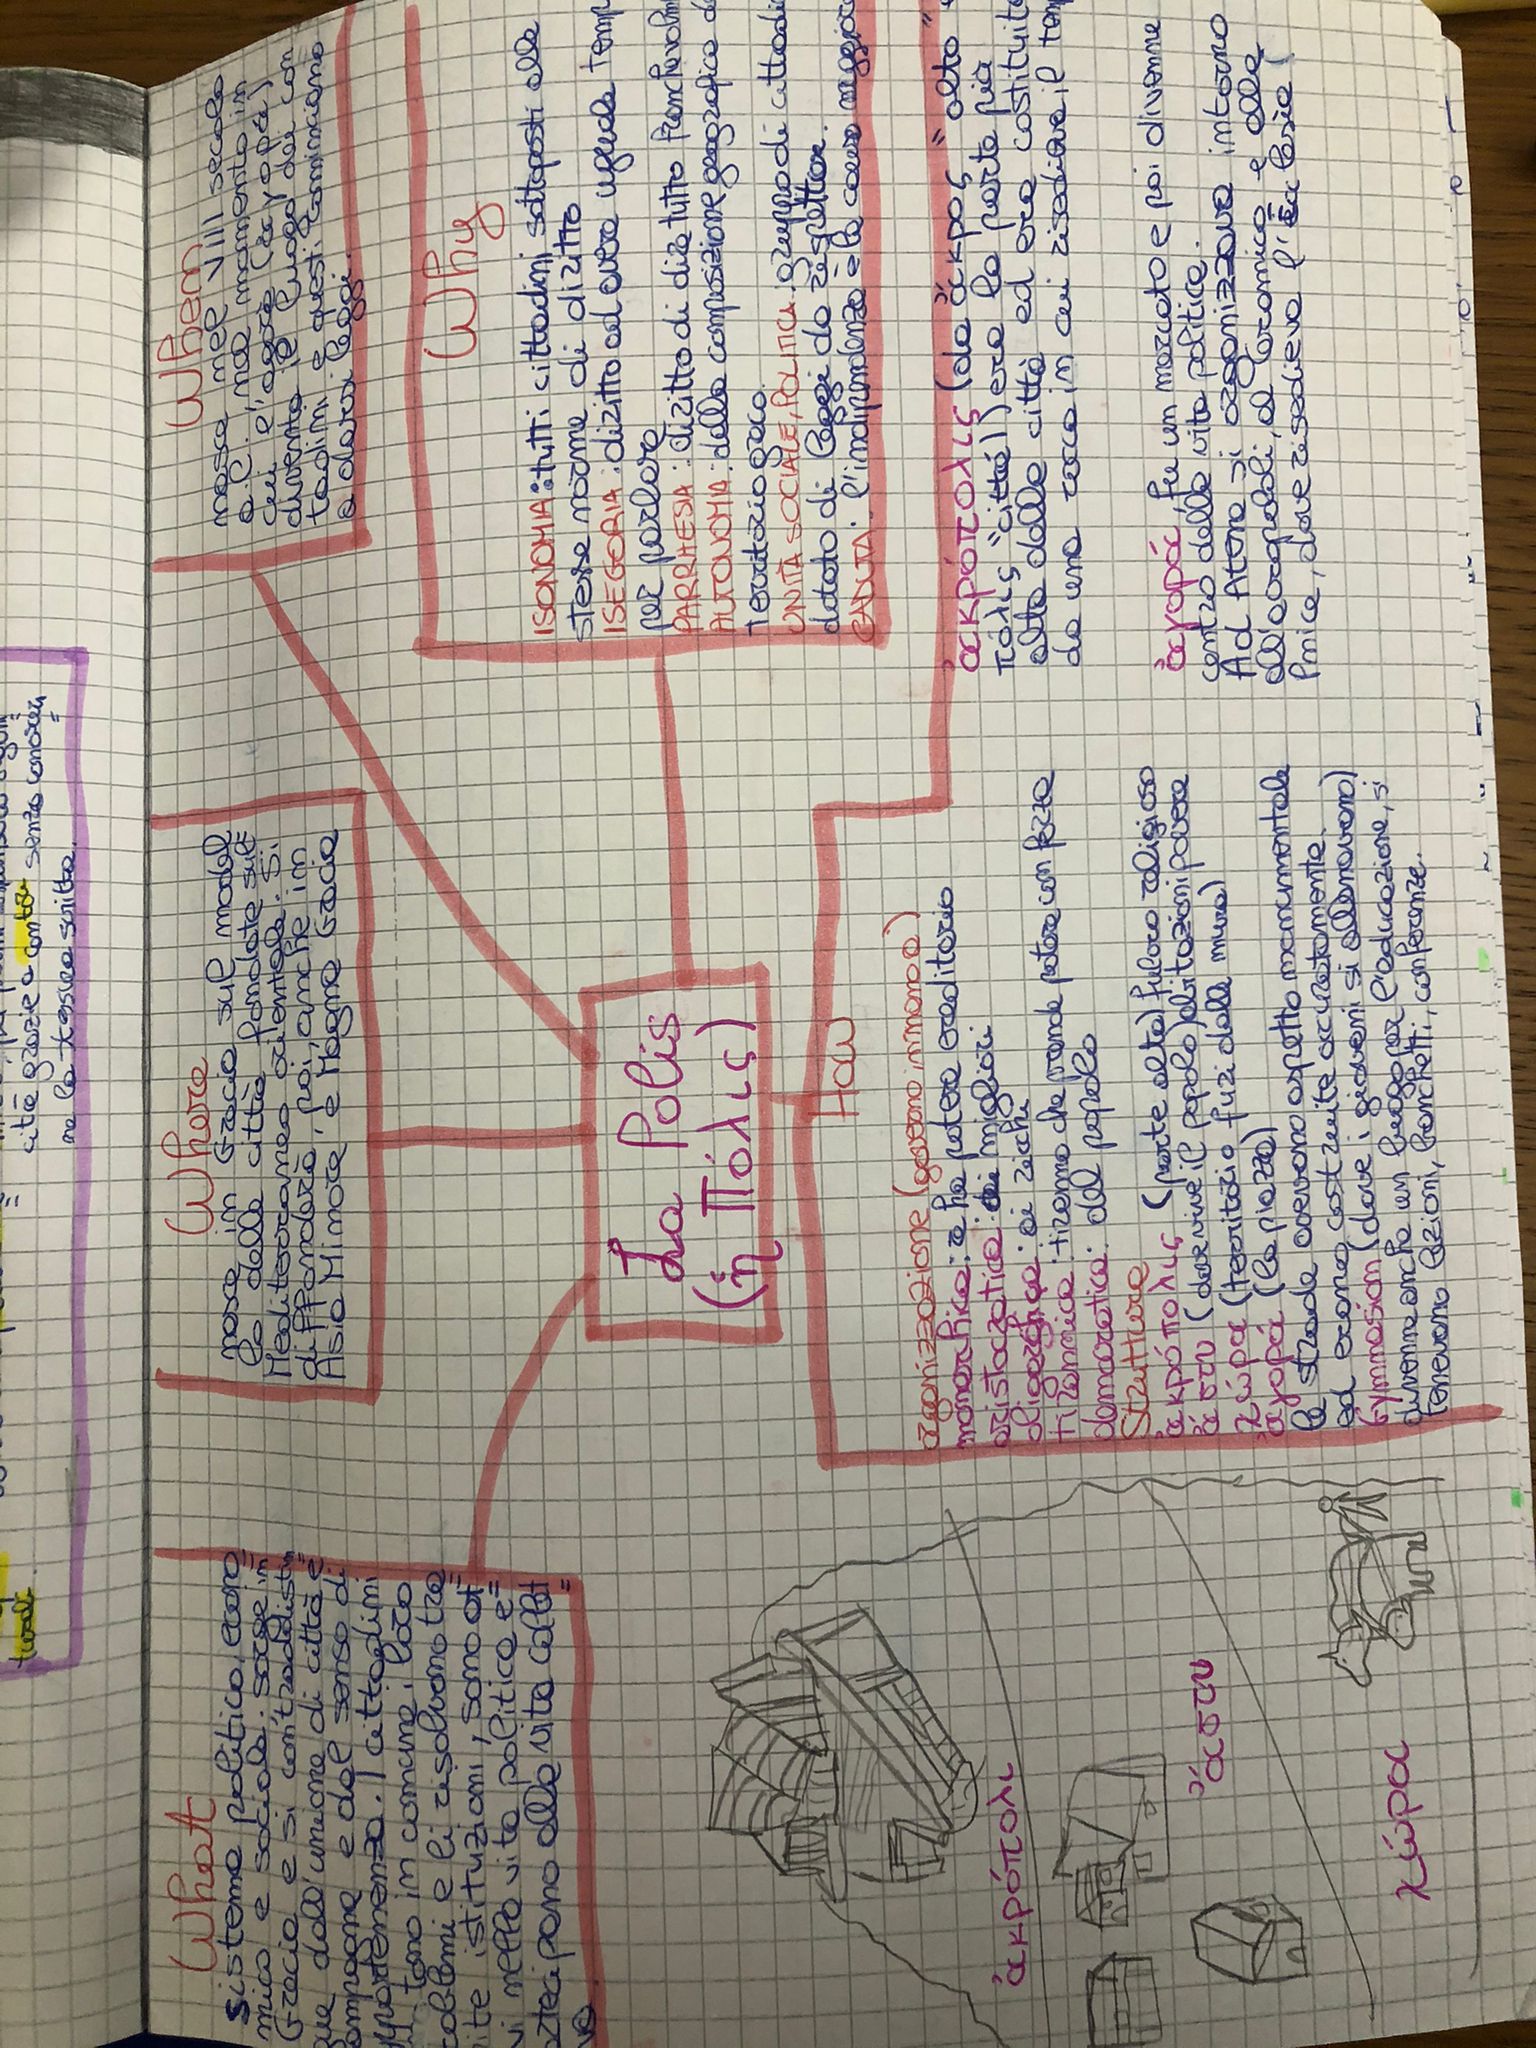 città grazie a cantori senza conoscer=
ne la tessera scritta.
turali.
What
sistema politico, econo=
mico e sociale. sorse in
Grecia e si contraddistin=
que dall'unione di città e
campagne e dal senso di
appartenenza. I cittadini
in comune, loro
problemi e li risolvono tra=
ite istituzioni, sono at=
vi nella vita politica e
partecipano alla vita collet=
Where
nasce in Grecia sul model
lo delle città fondate sul
Mediterraneo orientale. Si
diffonderà, poi, anche in
Asia Minore, e Magna Grecia
When
nasce nel VIII secolo
a.C.; nel momento in
cui l'agorà (ἀγορά)
diventa il luogo dei cit=
tadini e questi cominciano
a darsi leggi.
La Polis
(ἡ Πόλις)
Why
ISONOMIA: tutti cittadini sottoposti alle
stesse norme di diritto
ISEGORIA: diritto ad avere uguale temp
per parlare
PARRHESIA: diritto di dire tutto francevolm
AUTONOMIA: dalla composizione geografica d
territorio greco.
UNITÀ SOCIALE, POLITICA: gruppo di cittadi
dotato di leggi da rispettare.
CADUTA: l'indipendenza è la causa maggior
How
organizzazione (governo in mano a)
monarchica: re ha potere ereditario
aristocratica: dei migliori
oligarghica: ai ricchi
tirannica: tiranno che prende potere con forza
democratica: del popolo
Struttura
ἀκρόπολις (parte alta) fulcro religioso
ἄστυ (dove vive il popolo) abitazioni povere
χώρα (territorio fuori dalle mura)
ἀγορά (la piazza)
le strade avevano aspetto monumentale
ed erano costruite accuratamente.
Gymnasion (dove i giovani si allenavano)
divenne anche un luogo per l'educazione, si
tenevano lezioni, banchetti, conferenze.
ἀκρόπολις (da ἄκρος "alto" e
πόλις "città") era la parte più
alta della città ed era costituita
da una rocca in cui risiedeva il tem
ἀγορά, fu un mercato e poi divenne
centro della vita politica.
Ad Atene si organizzava intorno
all'acropoli, al ceramico e alla
Pnice, dove risiedeva l'ἐκκλησία
ἀκρόπολι
ἄστυ
χώρα